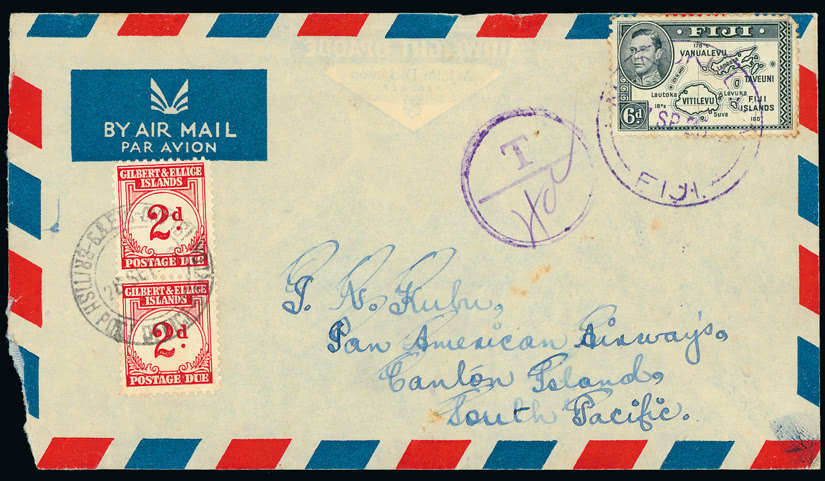 BY AIR MAIL
PAR AVION
FIJI
VANUALEVU
TAVEUNI
Lautoka
Levuka
VITILEVU
FIJI
ISLANDS
Suva
180°
6d
SP
FIJI.
T
4d
GILBERT & ELLICE
ISLANDS
2d.
POSTAGE DUE
GILBERT & ELLICE
ISLANDS
2d.
POSTAGE DUE
BRITISH POST OFFICE
Pan American Airways,
Canton Island,
South Pacific.